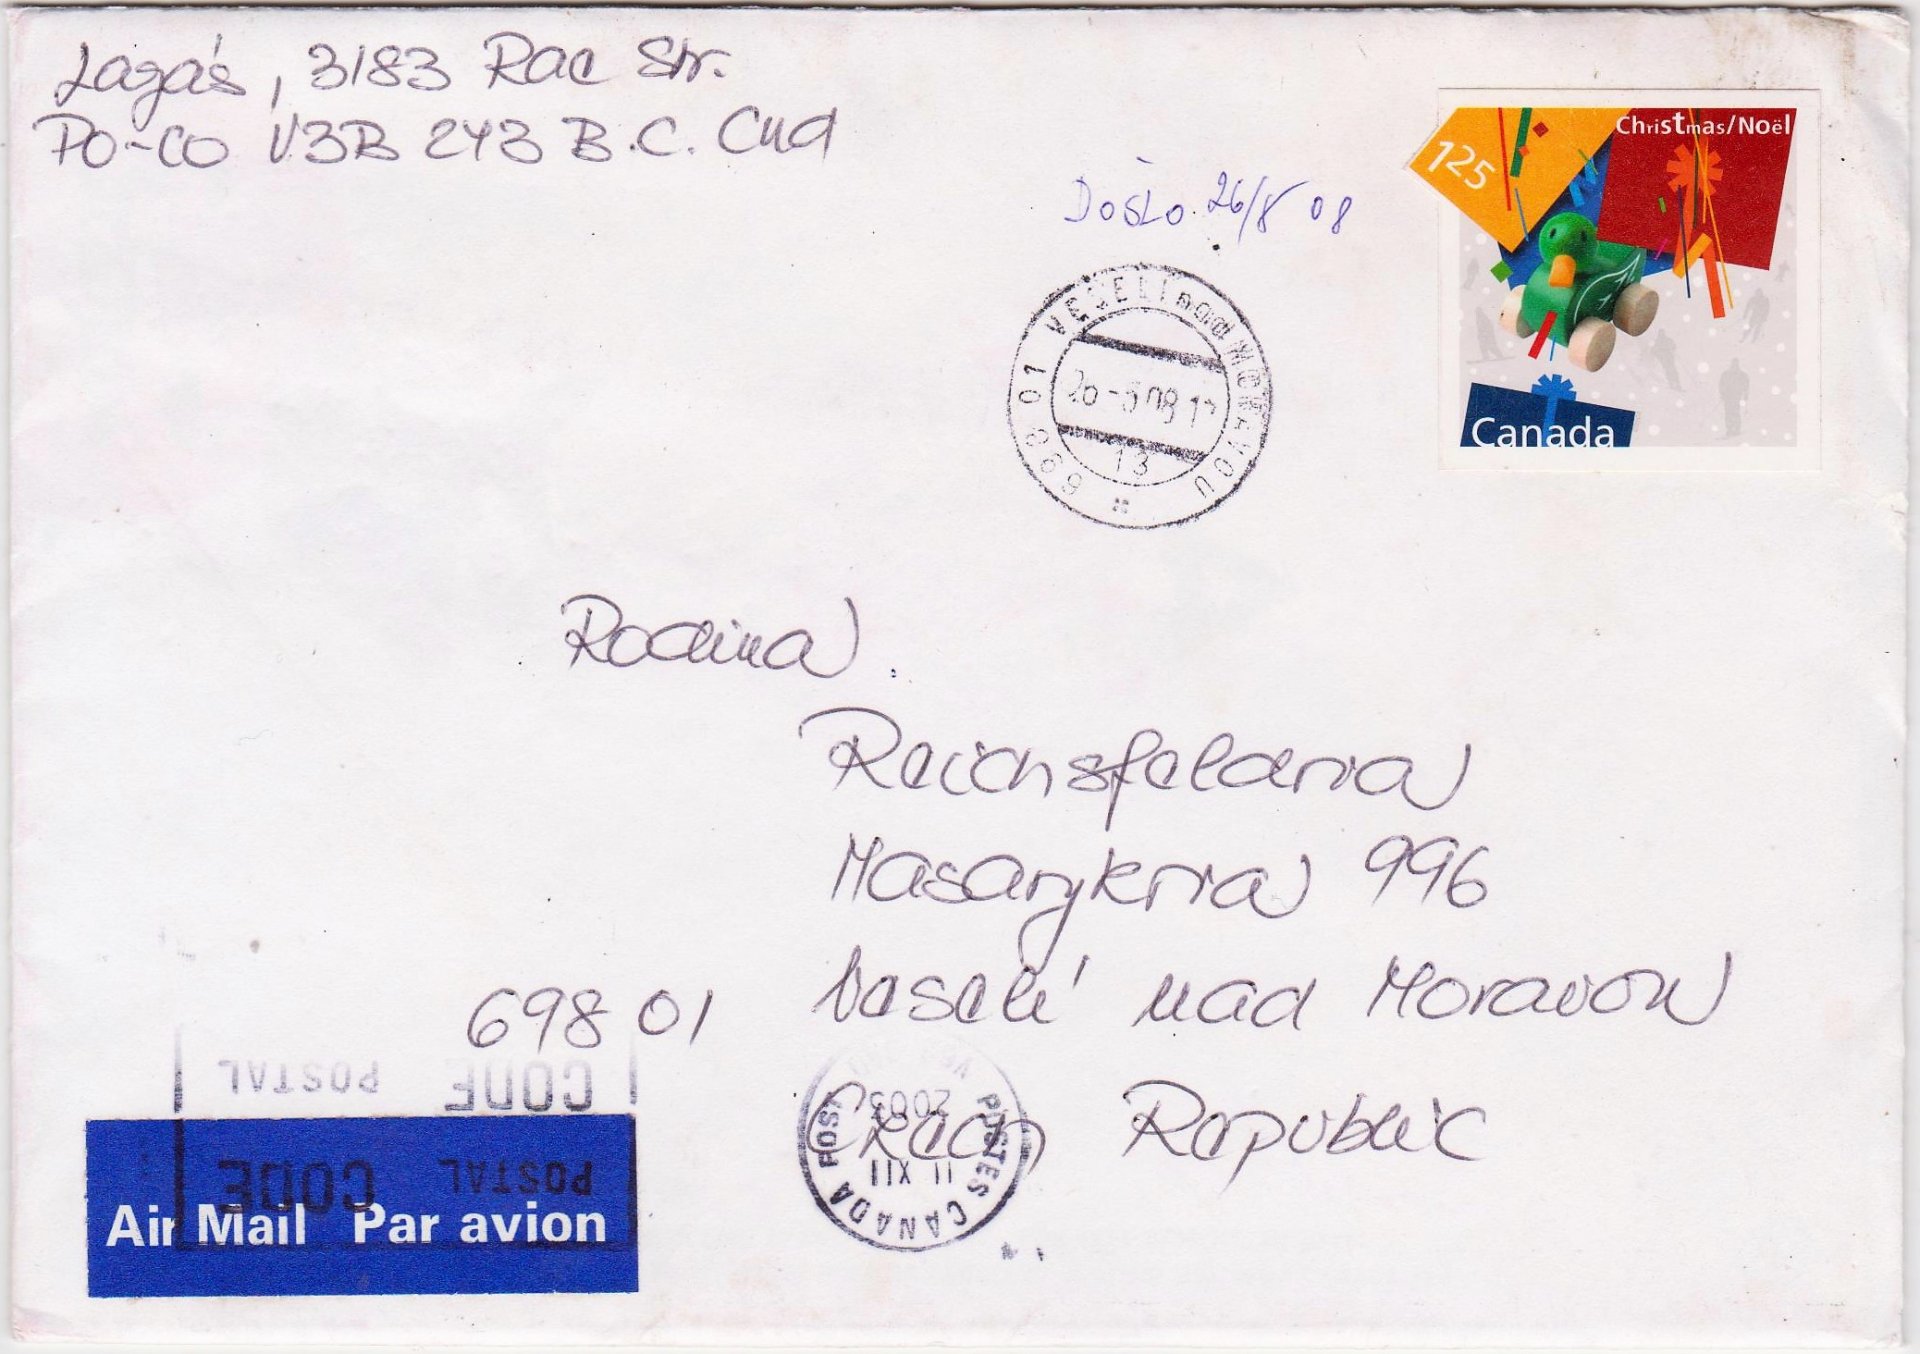 Lagaś, 3183 Rae Str.
PO-CO V3B 2Y3 B.C. Cnd
Christmas/Noël
125
Canada
Došlo 26/8 08
698 01 VESELI nad MORAVOU
26 -8 08
13
Rodina
Reichsfeldria
Masarykria 996
698 01 Veselí nad Moravou
Czech Republic
CODE
POSTAL
POSTAL
CODE
CANADA POST
POSTES CANADA
11 XII
2003
Air Mail Par avion